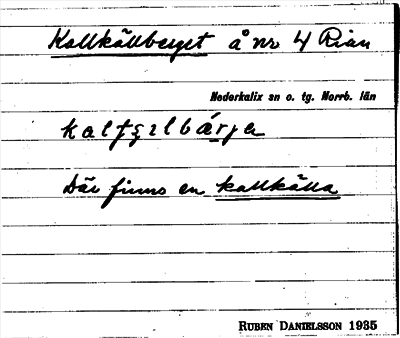 Kallkällberget å nr 4 Rian
Nederkalix sn o. tg. Norrb. län
kalfʒɛlbárja
Där finns en kallkälla
RUBEN DANIELSSON 1935